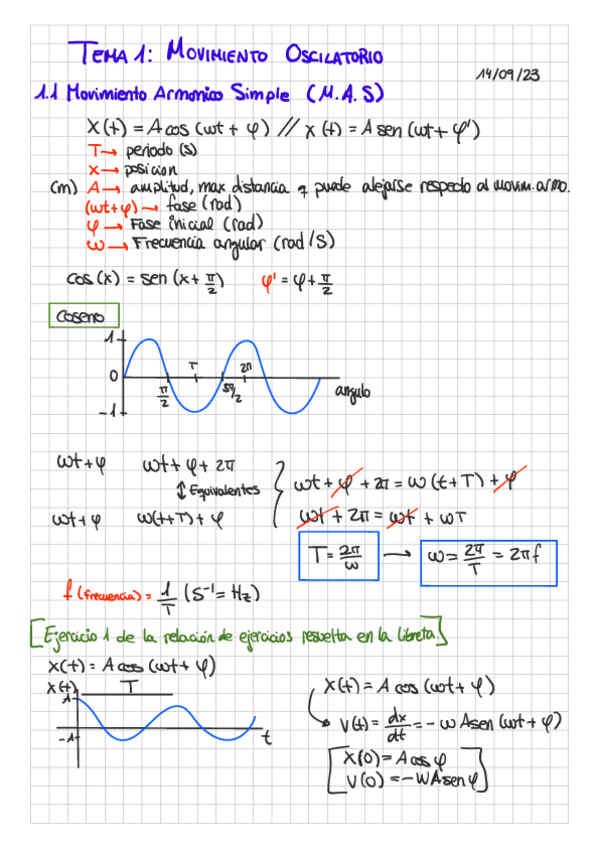 TEMA 1: MOVIMIENTO OSCILATORIO
14/09/23
1.1 Movimiento Armonico Simple (M.A.S)
X(t) = A cos (ωt + φ) // x (t) = A sen (ωt + φ')
T → periodo (s)
x → posicion
(m) A → amplitud, max distancia q puede alejarse respecto al movim. armo.
(ωt+φ) → fase (rad)
φ → Fase inicial (rad)
ω → Frecuencia angular (rad/s)
cos (x) = sen (x + π/2) φ' = φ + π/2
coseno
1
T 2π
0
π/2 3π/2 angulo
-1
ωt+φ ωt + φ + 2π
↕ Equivalentes
ωt + φ + 2π = ω (t + T) + φ
ωt + φ ω(t+T) + φ
ωt + 2π = ωt + ωT
T = 2π/ω → ω = 2π/T = 2πf
f (frecuencia) = 1/T (s⁻¹ = Hz)
[Ejercicio 1 de la relación de ejercicios resuelta en la libreta.]
X(t) = A cos (ωt + φ)
X(t) T
A
-A t
X(t) = A cos (ωt + φ)
V(t) = dx/dt = - ω A sen (ωt + φ)
X(0) = A cos φ
V(0) = -WA sen φ